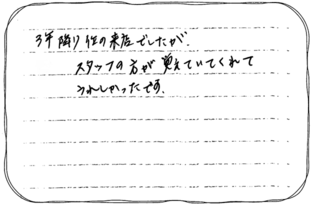 3年降り位の来店でしたが、
スタッフの方が覚えていてくれて
うれしかったです。